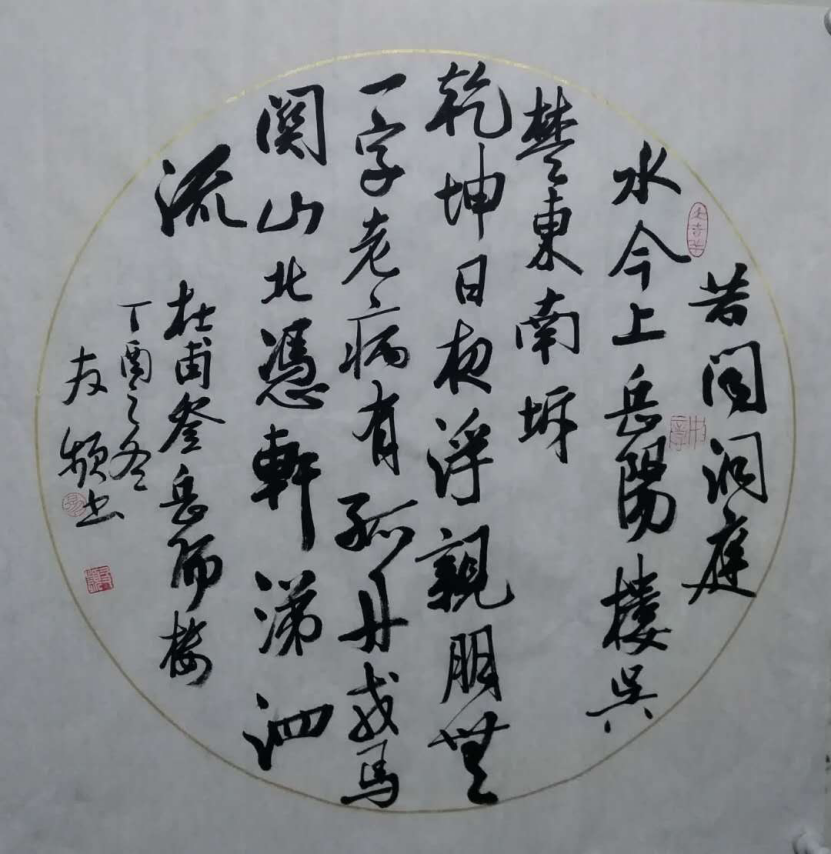 昔闻洞庭
水今上岳陽楼吴
楚東南坼
乾坤日夜浮親朋無
一字老病有孤舟戎馬
関山北憑軒涕泗
流
杜甫登岳陽楼
丁酉之冬
友频书